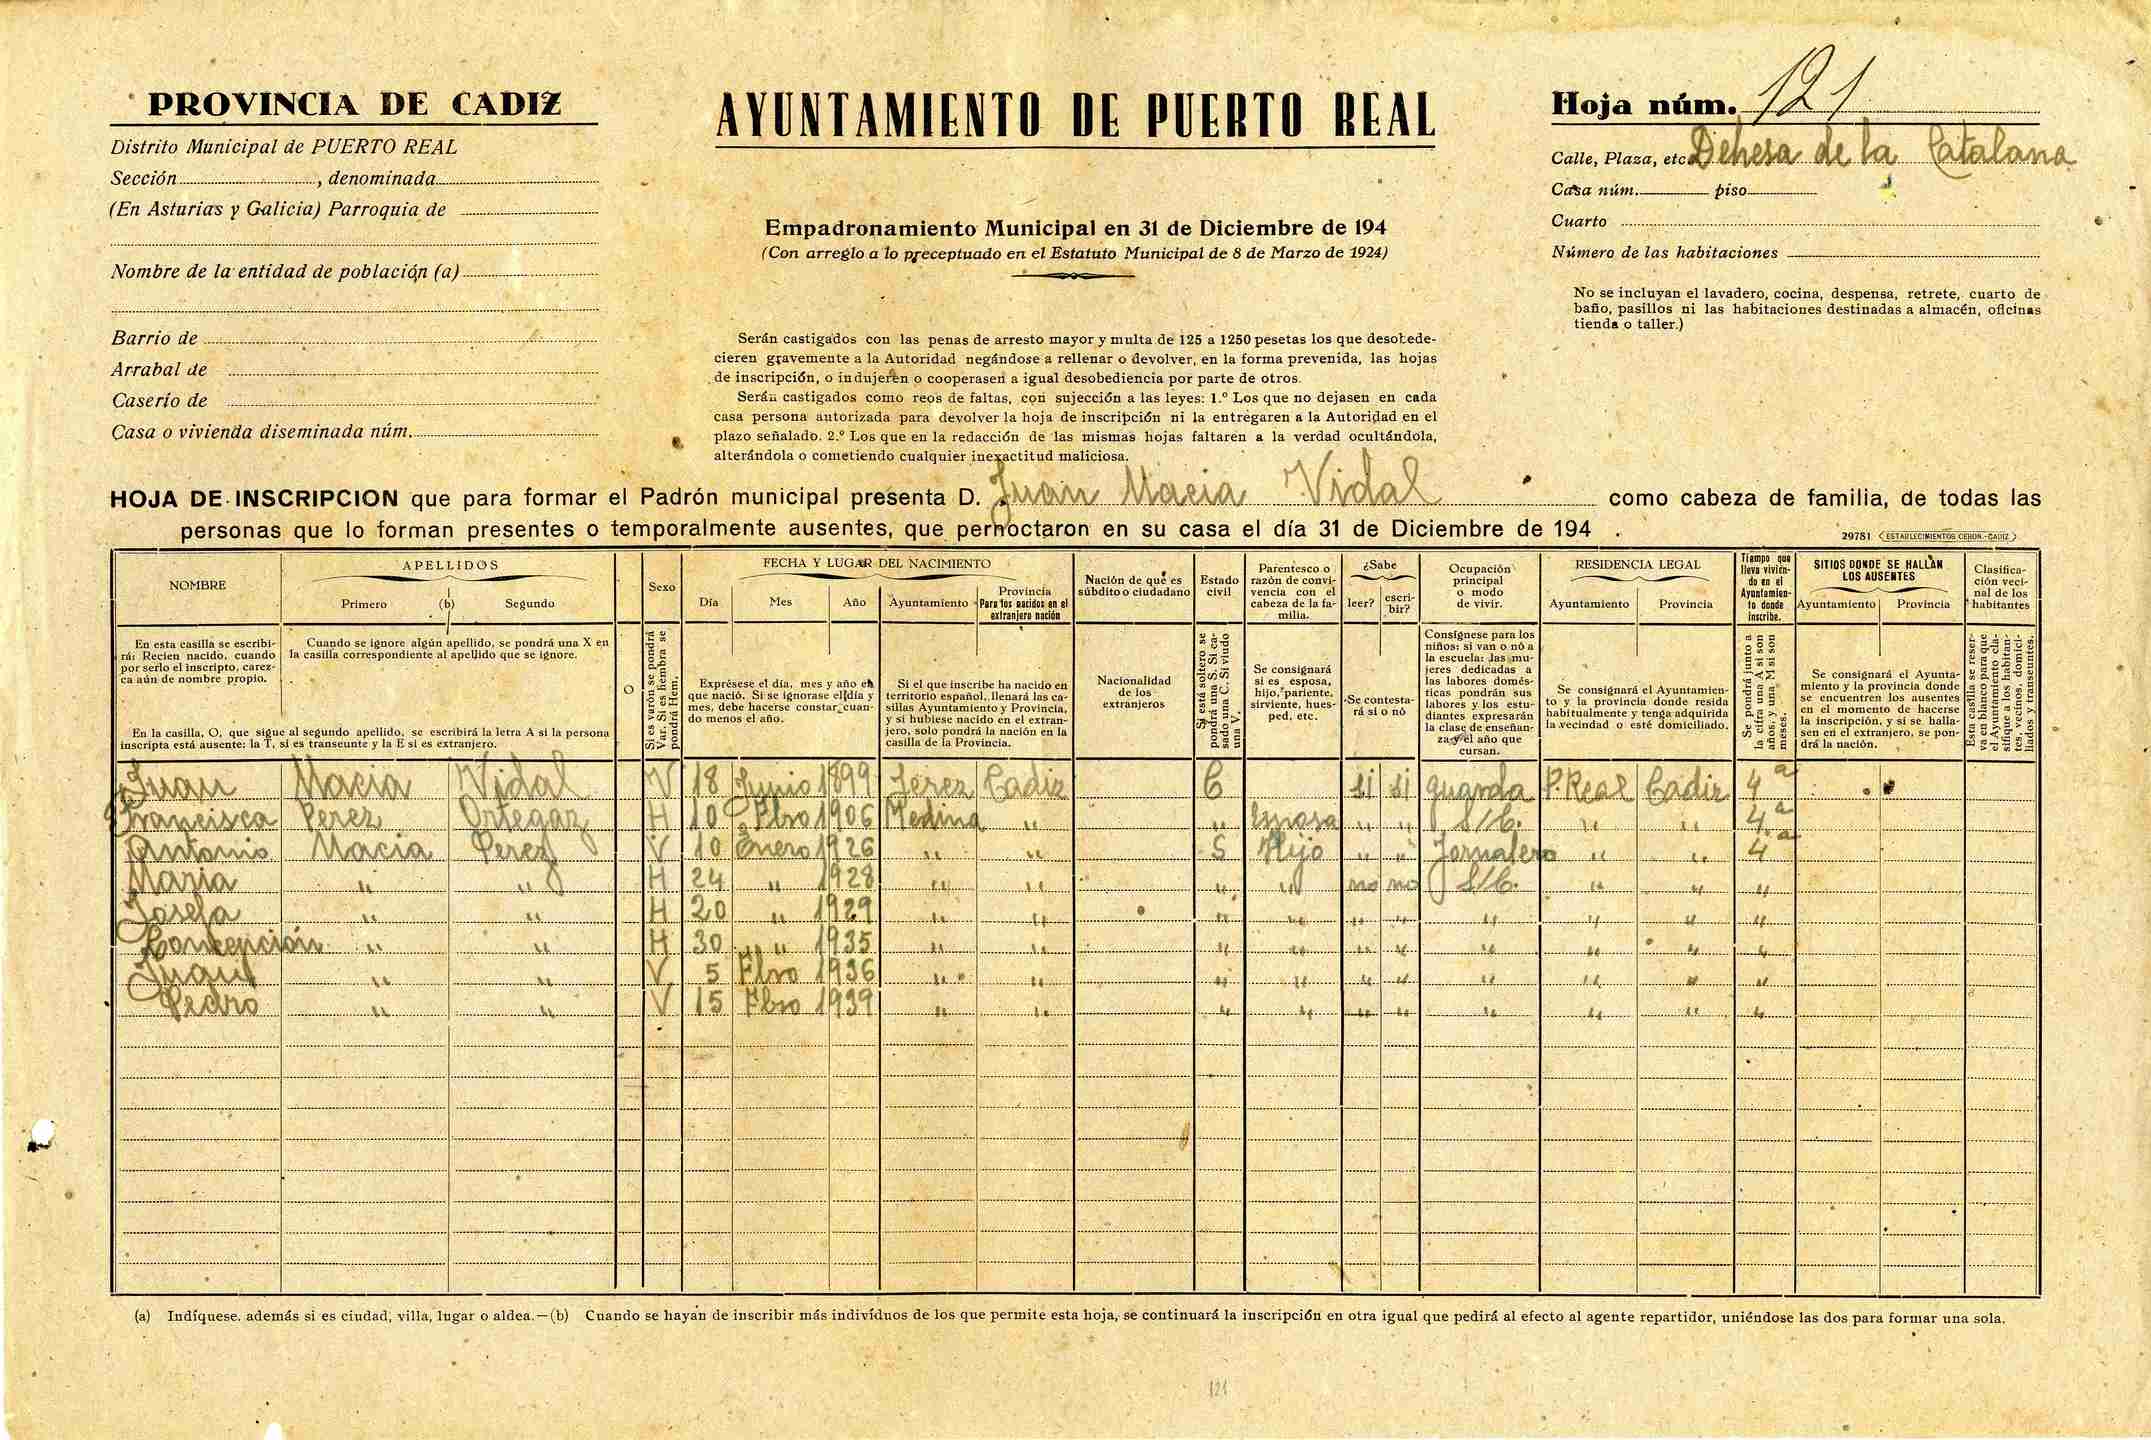 PROVINCIA DE CADIZ
Distrito Municipal de PUERTO REAL
Sección , denominada
(En Asturias y Galicia) Parroquia de
Nombre de la entidad de población (a)
Barrio de
Arrabal de
Caserío de
Casa o vivienda diseminada núm.
AYUNTAMIENTO DE PUERTO REAL
Empadronamiento Municipal en 31 de Diciembre de 194
(Con arreglo a lo preceptuado en el Estatuto Municipal de 8 de Marzo de 1924)
Serán castigados con las penas de arresto mayor y multa de 125 a 1250 pesetas los que desobede-
cieren gravemente a la Autoridad negándose a rellenar o devolver, en la forma prevenida, las hojas
de inscripción, o indujeren o cooperasen a igual desobediencia por parte de otros.
Serán castigados como reos de faltas, con sujección a las leyes: 1.º Los que no dejasen en cada
casa persona autorizada para devolver la hoja de inscripción ni la entregaren a la Autoridad en el
plazo señalado. 2.º Los que en la redacción de las mismas hojas faltaren a la verdad ocultándola,
alterándola o cometiendo cualquier inexactitud maliciosa.
Hoja núm. 121
Calle, Plaza, etc. Dehesa de la Catalana
Casa núm. piso
Cuarto
Número de las habitaciones
No se incluyan el lavadero, cocina, despensa, retrete, cuarto de
baño, pasillos ni las habitaciones destinadas a almacén, oficinas
tienda o taller.)
HOJA DE INSCRIPCION que para formar el Padrón municipal presenta D. Juan Macia Vidal como cabeza de familia, de todas las
personas que lo forman presentes o temporalmente ausentes, que pernoctaron en su casa el día 31 de Diciembre de 194 .
29781 (ESTABLECIMIENTOS CERON.-CADIZ)
NOMBRE
En esta casilla se escribi-
rá: Recien nacido, cuando
por serlo el inscripto, carez-
ca aún de nombre propio.
APELLIDOS
Primero (b) Segundo
Cuando se ignore algún apellido, se pondrá una X en
la casilla correspondiente al apellido que se ignore.
En la casilla, O, que sigue al segundo apellido, se escribirá la letra A si la persona
inscripta está ausente: la T, si es transeunte y la E si es extranjero.
O
Sexo
Si es varón se pondrá
Var. Si es hembra se
pondrá Hem.
FECHA Y LUGAR DEL NACIMIENTO
Día Mes Año Ayuntamiento Provincia
Para los nacidos en el
extranjero nación
Exprésese el día, mes y año en
que nació. Si se ignorase el día y
mes, debe hacerse constar cuan-
do menos el año.
Si el que inscribe ha nacido en
territorio español, llenará las ca-
sillas Ayuntamiento y Provincia,
y si hubiese nacido en el extran-
jero, solo pondrá la nación en la
casilla de la Provincia.
Nación de que es
súbdito o ciudadano
Nacionalidad
de los
extranjeros
Estado
civil
Si está soltero se
pondrá una S. Si ca-
sado una C. Si viudo
una V.
Parentesco o
razón de convi-
vencia con el
cabeza de la fa-
milia.
Se consignará
si es esposa,
hijo, pariente,
sirviente, hues-
ped, etc.
¿Sabe
leer? escri-
bir?
Se contesta-
rá si o nó
Ocupación
principal
o modo
de vivir.
Consígnese para los
niños: si van o nó a
la escuela: las mu-
jeres dedicadas a
las labores domés-
ticas pondrán sus
labores y los estu-
diantes expresarán
la clase de enseñan-
za y el año que
cursan.
RESIDENCIA LEGAL
Ayuntamiento Provincia
Se consignará el Ayuntamien-
to y la provincia donde resida
habitualmente y tenga adquirida
la vecindad o esté domiciliado.
Tiempo que
lleva vivién-
do en el
Ayuntamien-
to donde
inscribe.
Se pondrá junto a
la cifra una A si son
años, y una M si son
meses.
SITIOS DONDE SE HALLAN
LOS AUSENTES
Ayuntamiento Provincia
Se consignará el Ayunta-
miento y la provincia donde
se encuentren los ausentes
en el momento de hacerse
la inscripción, y si se halla-
sen en el extranjero, se pon-
drá la nación.
Clasifica-
ción veci-
nal de los
habitantes
Esta casilla se reser-
va en blanco para que
el Ayuntamiento cla-
sifique a los habitan-
tes, vecinos, domici-
liados y transeuntes.
Juan Macia Vidal V 18 Junio 1899 Jerez Cadiz C si si guarda P. Real Cadiz 4 a
Francisca Perez Ortegaz H 10 Fbro 1906 Medina " " Esposa " " S/C. " " 4 a
Antonio Macia Perez V 10 Enero 1926 " " S Hijo " " Jornalero " " 4 a
Maria " " H 24 " 1928 " " " " no no S/C. " " "
Josefa " " H 20 " 1929 " " " " " " " " " "
Concepción " " H 30 " 1935 " " " " " " " " " "
Juan " " V 5 Fbro 1936 " " " " " " " " " "
Pedro " " V 15 Fbro 1939 " " " " " " " " " "
(a) Indíquese, además si es ciudad, villa, lugar o aldea.—(b) Cuando se hayan de inscribir más indivíduos de los que permite esta hoja, se continuará la inscripción en otra igual que pedirá al efecto al agente repartidor, uniéndose las dos para formar una sola.
121